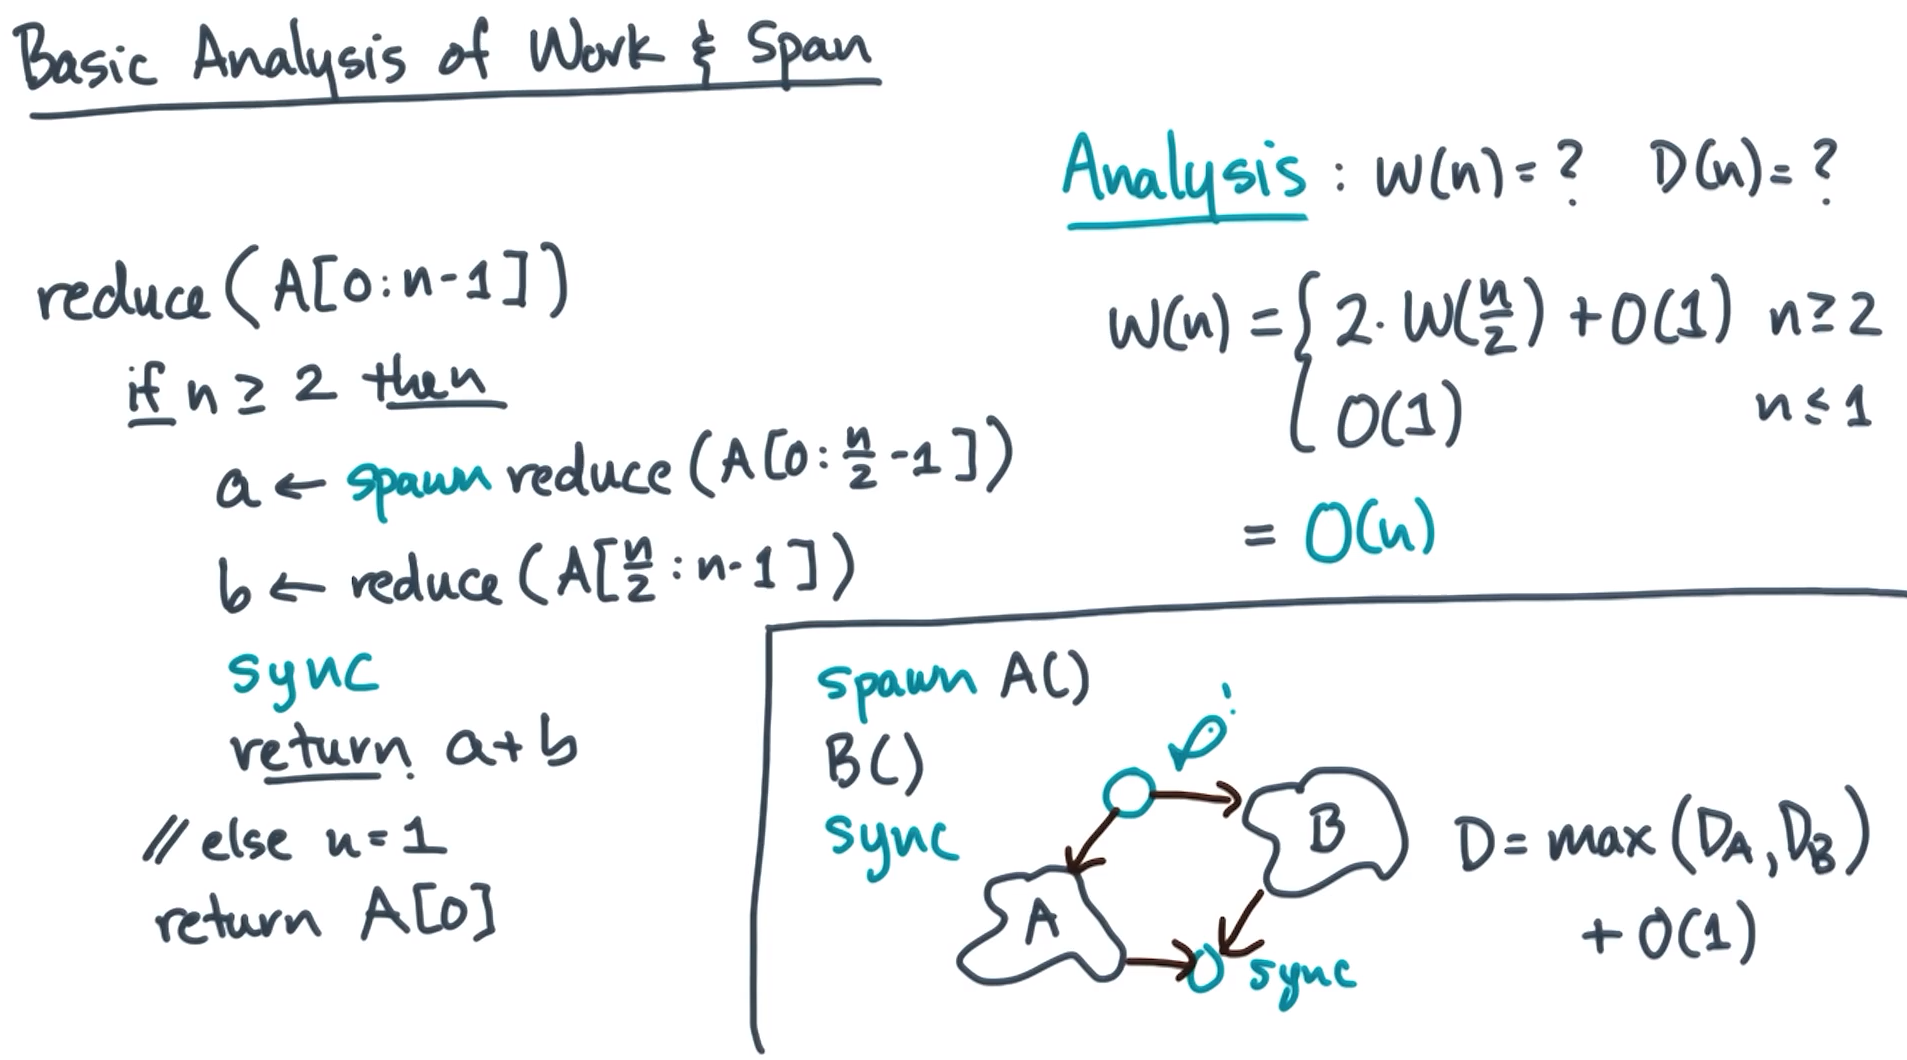 Basic Analysis of Work & Span
reduce (A[0:n-1])
if n ≥ 2 then
a ← spawn reduce (A[0:n/2-1])
b ← reduce (A[n/2:n-1])
sync
return a+b
// else n=1
return A[0]
Analysis : W(n)=? D(n)=?
W(n) = { 2·W(n/2) + O(1) n≥2
O(1) n≤1
= O(n)
spawn A()
B()
sync
B
A
sync
D = max (D_A, D_B)
+ O(1)